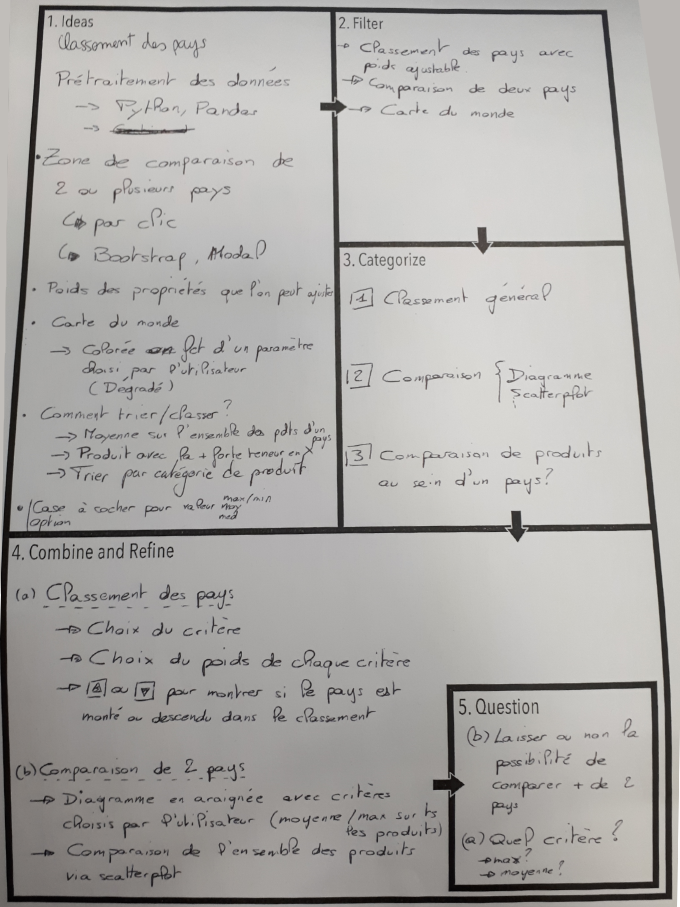 1. Ideas
Classement des pays
Prétraitement des données
→ Python, Pandas
→
• Zone de comparaison de
2 ou plusieurs pays
↳ par clic
↳ Bootstrap, Modal
• Poids des propriétés que l'on peut ajuster
• Carte du monde
→ Colorée en fct d'un paramètre
choisi par l'utilisateur
(Dégradé)
• Comment trier/classer ?
→ Moyenne sur l'ensemble des pdts d'un pays
→ Produit avec la + forte teneur en X
→ Trier par catégorie de produit
• Case à cocher pour valeur max/min
option moy
med
2. Filter
→ Classement des pays avec
poids ajustable.
→ Comparaison de deux pays
→ Carte du monde
3. Categorize
1 Classement général
2 Comparaison { Diagramme
Scatterplot
3 Comparaison de produits
au sein d'un pays?
4. Combine and Refine
(a) Classement des pays
→ Choix du critère
→ Choix du poids de chaque critère
→ ▲ ou ▼ pour montrer si le pays est
monté ou descendu dans le classement
(b) Comparaison de 2 pays
→ Diagramme en araignée avec critères
choisis par l'utilisateur (moyenne/max sur ts
les produits)
→ Comparaison de l'ensemble des produits
via scatterplot
5. Question
(b) Laisser ou non la
possibilité de
comparer + de 2
pays
(a) Quel critère ?
→ max ?
→ moyenne ?